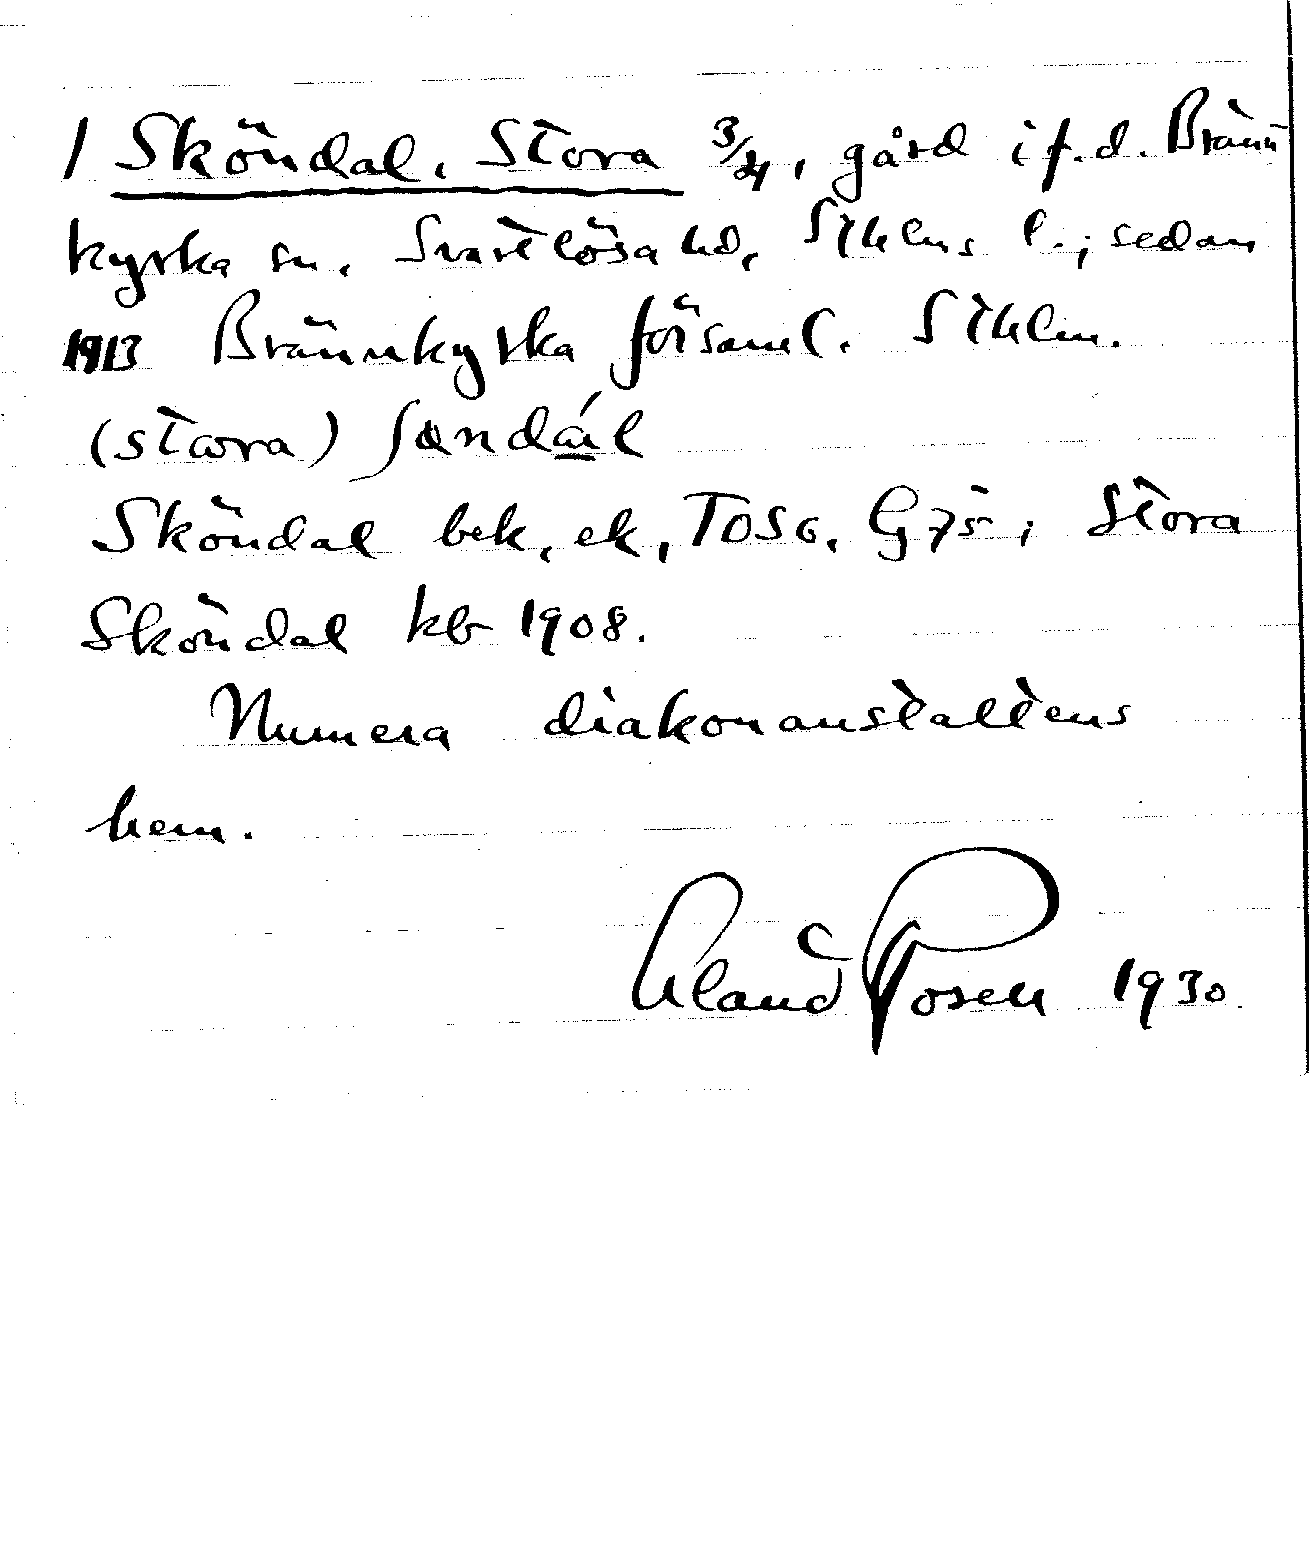 1 Sköndal, Stora 3/4, gård i f.d. Bränn
kyrka sn, Svartlösa hd, Sthlms l.; sedan
1913 Brännkyrka församl. Sthlm.
(stora) ʃöndál
Sköndal bek, ek, TOSG, G75; Stora
Sköndal kb 1908.
Numera diakonanstaltens
hem.
1930.